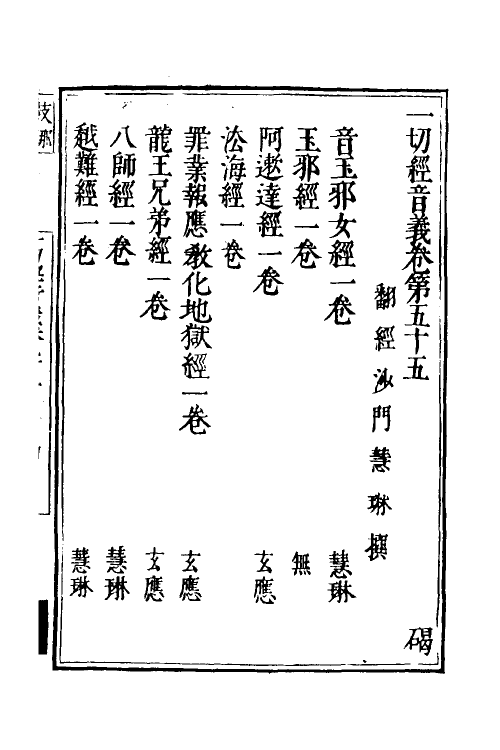 一切經音義卷第五十五 碣
翻經沙門慧琳撰
音玉邪女經一卷 慧琳
玉邪經一卷 無
阿遬達經一卷 玄應
法海經一卷
罪業報應教化地獄經一卷 玄應
龍王兄弟經一卷 玄應
八師經一卷 慧琳
越難經一卷 慧琳